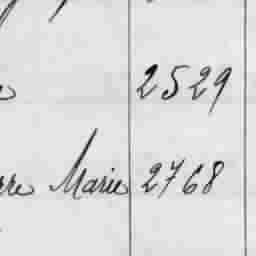 2529
rre Marie 2768